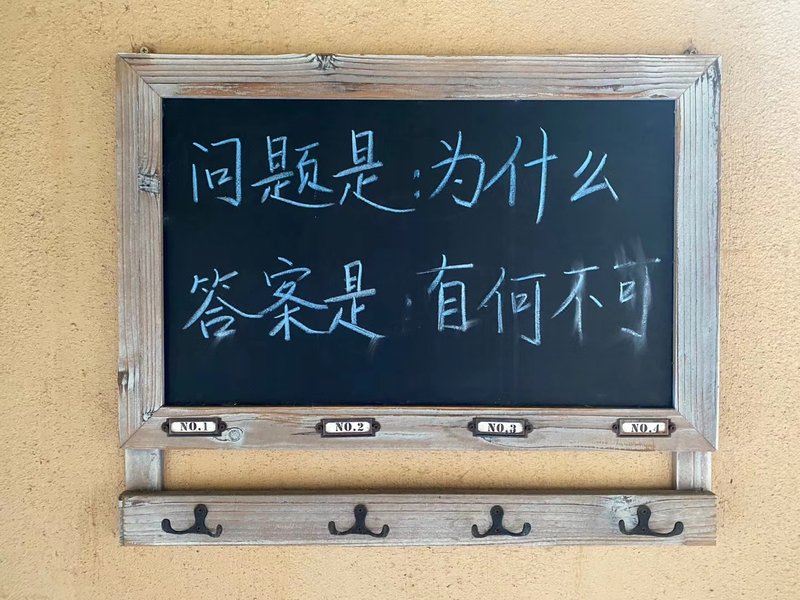 问题是:为什么
答案是:有何不可
NO.1 NO.2 NO.3 NO.4